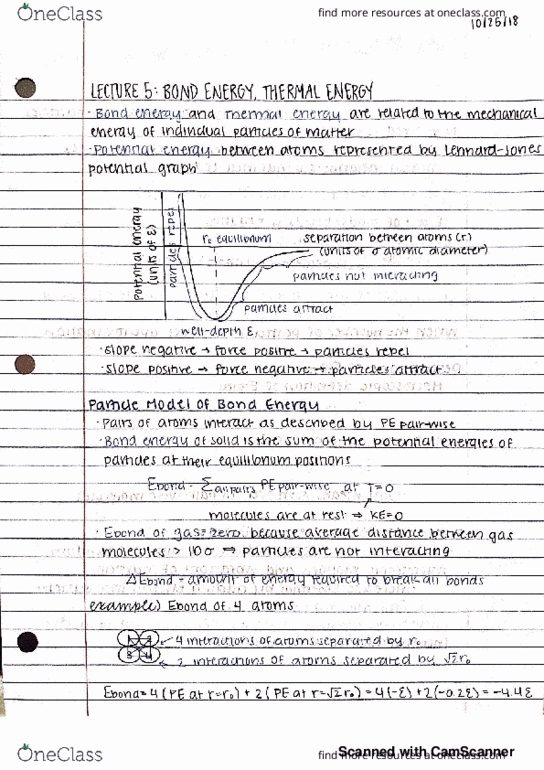 OneClass
find more resources at oneclass.com
10/25/18
LECTURE 5: BOND ENERGY, THERMAL ENERGY
· Bond energy and Thermal energy are related to the mechanical
energy of individual particles of matter
· Potential energy between atoms represented by Lennard-Jones
potential graph
potential energy
(units of ε)
particles repel
r₀ equilibrium
separation between atoms (r)
(units of σ atomic diameter)
particles not interacting
particles attract
well-depth ε
· slope negative → force positive → particles repel
· slope positive → force negative → particles attract
Particle Model of Bond Energy
· Pairs of atoms interact as described by PE pair-wise
· Bond energy of solid is the sum of the potential energies of
particles at their equilibrium positions
Ebond = Σ all pairs PE pair-wise at T=0
molecules are at rest ⇒ KE=0
· Ebond of gas = zero because average distance between gas
molecules > 10σ ⇒ particles are not interacting
ΔEbond = amount of energy required to break all bonds
example) Ebond of 4 atoms
1 2
3 4
4 interactions of atoms separated by r₀
2 interactions of atoms separated by √2r₀
Ebond = 4(PE at r=r₀) + 2(PE at r=√2r₀) = 4(-ε) + 2(-0.2ε) = -4.4ε
OneClass
find more resources at oneclass.com
Scanned with CamScanner